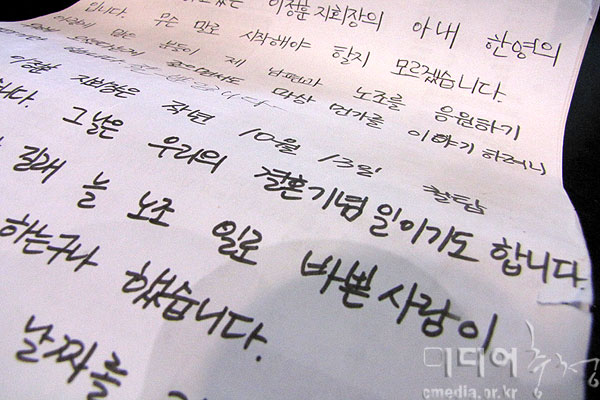 이정훈 지회장의 아내 한영의
입니다. 무슨 말로 시작해야 할지 모르겠습니다.
많은 분들이 제 남편과 노조를 응원하기
막상 먼가를 이야기 하려니
지회장은 작년 10월 13일 철탑
그날은 우리의 결혼기념일이기도 합니다.
늘 노조 일로 바쁜 사람이
하는구나 했습니다.
날짜를
미디어충청
cmedia.or.kr